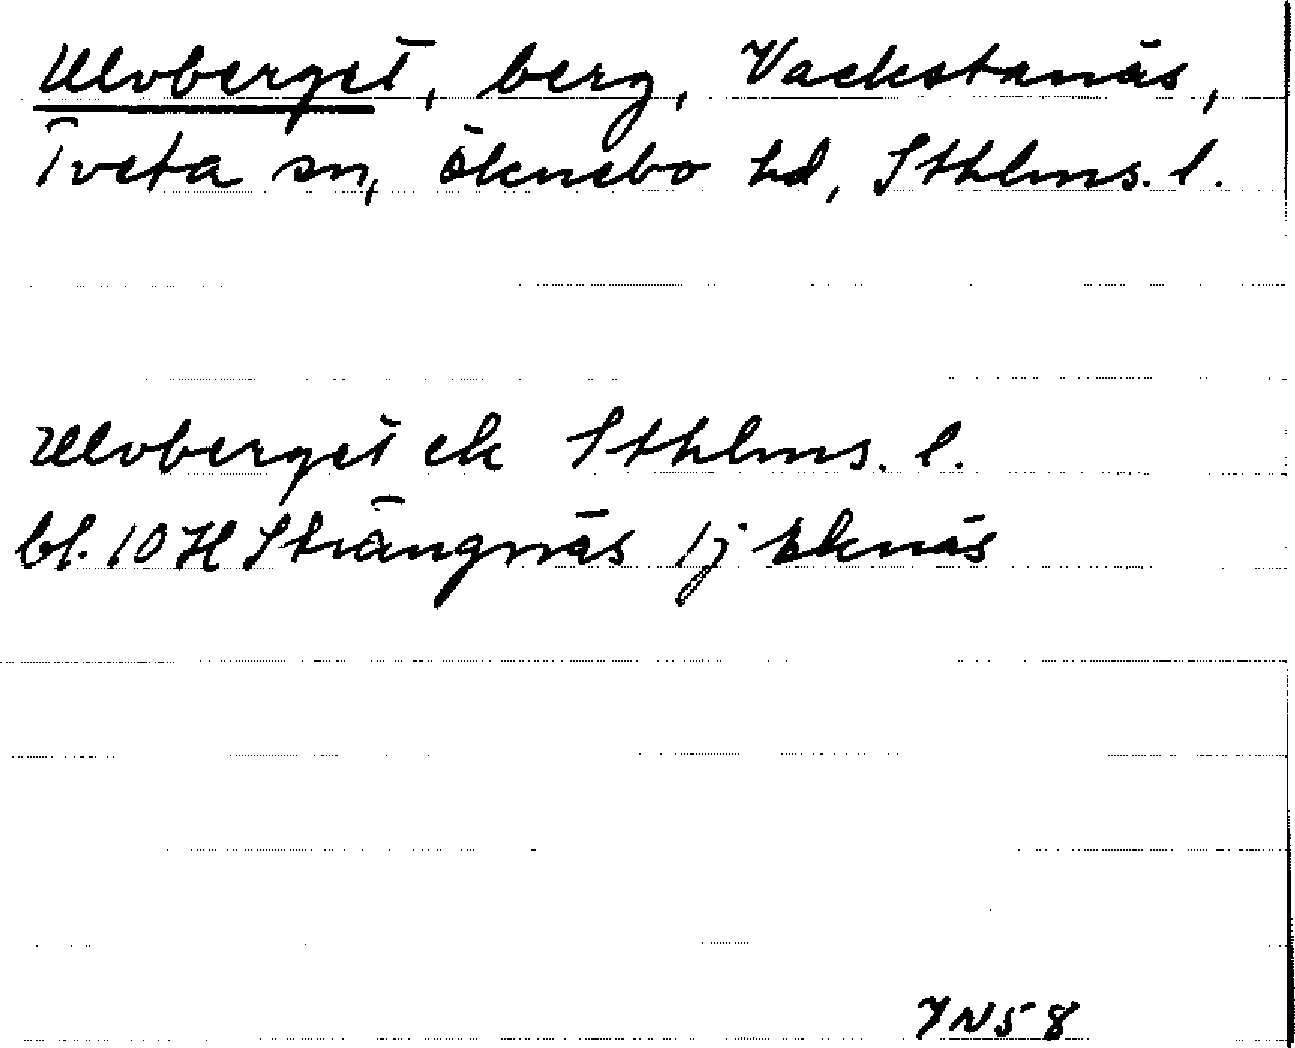 Ulvberget, berg, Vackstanäs,
Tveta sn, Öknebo hd, Sthlms. l.
Ulvberget ek Sthlms. l.
bl. 10 H Strängnäs 1j Eknäs
JN58